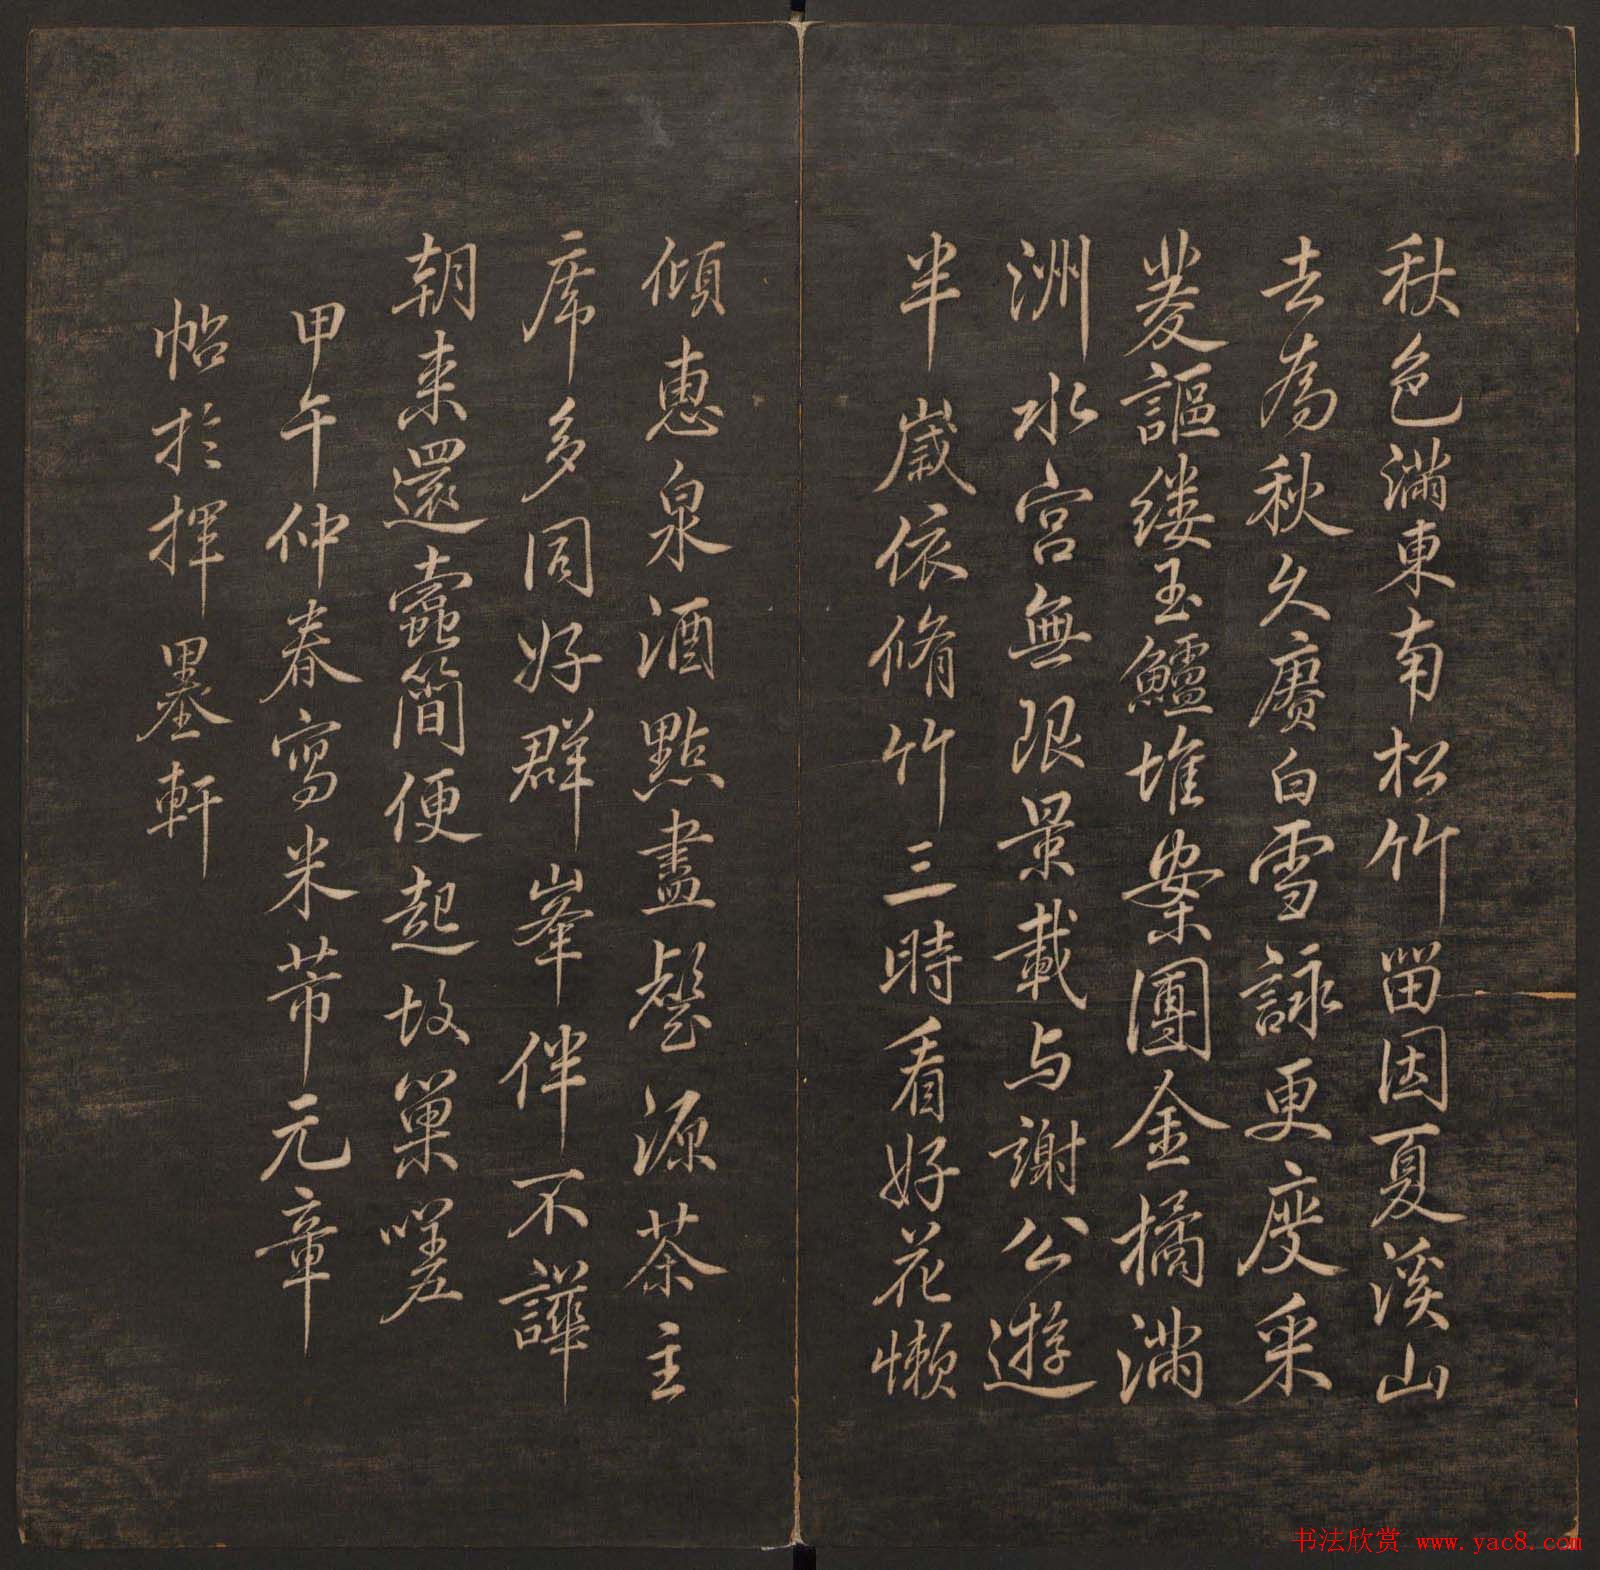 秋色滿東南松竹留因夏溪山
去為秋久賡白雪詠更度采
菱謳縷玉鱸堆案團金橘滿
洲水宮無限景載与謝公遊
半歲依脩竹三時看好花懶
傾惠泉酒點盡壑源茶主
席多同好群峯伴不譁
朝来還蠹簡便起故巢嗟
甲午仲春寫米芾元章
帖於揮墨軒
书法欣赏 www.yac8.com